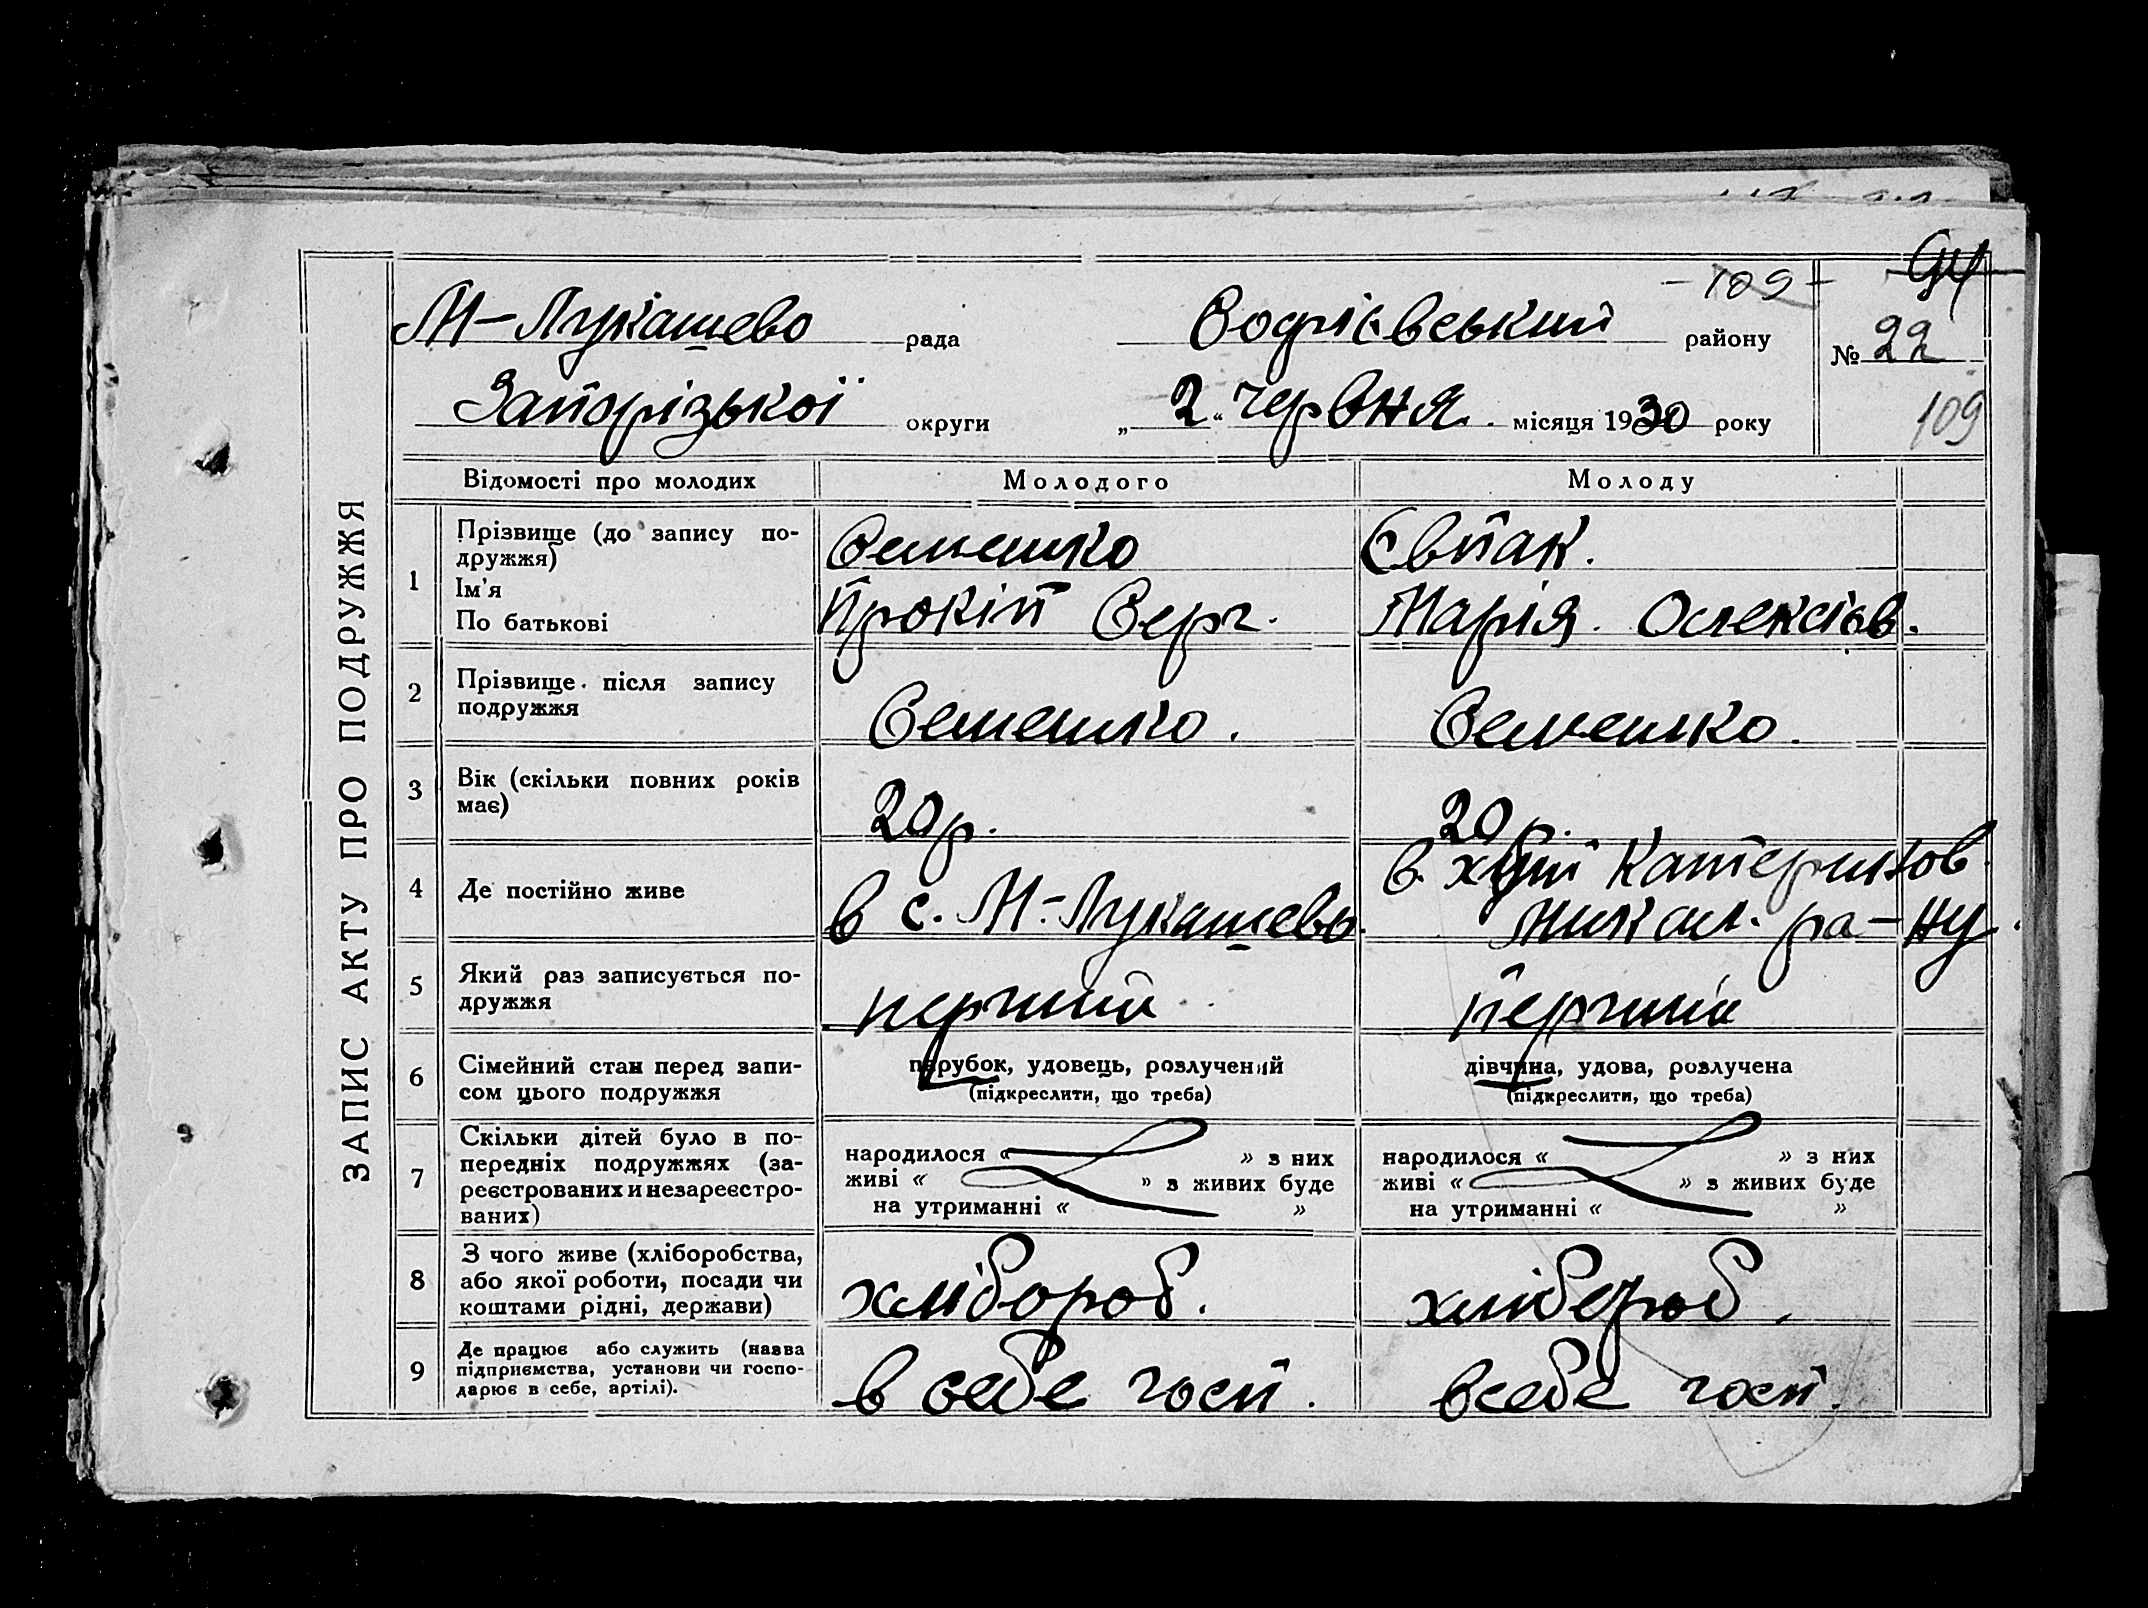 94
- 109 -
М-Лукашево рада Софіївський району № 22
Запорізької округи „ 2 “ червня. місяця 1930 року 109
ЗАПИС АКТУ ПРО ПОДРУЖЖЯ
Відомості про молодих Молодого Молоду
1 Прізвище (до запису подружжя) Семешко Євпак.
Ім'я
По батькові Прокіп Серг. Марія. Олексіїв.
2 Прізвище після запису подружжя Семешко. Семешко.
3 Вік (скільки повних років має) 20 р. 20 р.
4 Де постійно живе в с. М-Лукашево. в. хут Катеринов
Микол. ра-ну.
5 Який раз записується подружжя перший перший
6 Сімейний стан перед записом цього подружжя парубок, удовець, розлучений дівчина, удова, розлучена
(підкреслити, що треба) (підкреслити, що треба)
7 Скільки дітей було в попередніх подружжях (зареєстрованих и незареєстрованих)
народилося « » з них народилося « » з них
живі « » з живих буде живі « » з живих буде
на утриманні « » на утриманні « »
8 З чого живе (хліборобства, або якої роботи, посади чи коштами рідні, держави) хлібороб. хлібороб.
9 Де працює або служить (назва підприємства, установи чи господарює в себе, артілі). в себе госп. в себе госп.